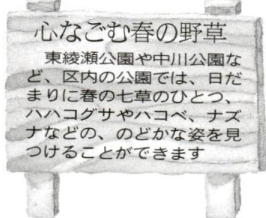 心なごむ春の野草
東綾瀬公園や中川公園な
ど、区内の公園では、日だ
まりに春の七草のひとつ、
ハハコグサやハコベ、ナズ
ナなどの、のどかな姿を見
つけることができます